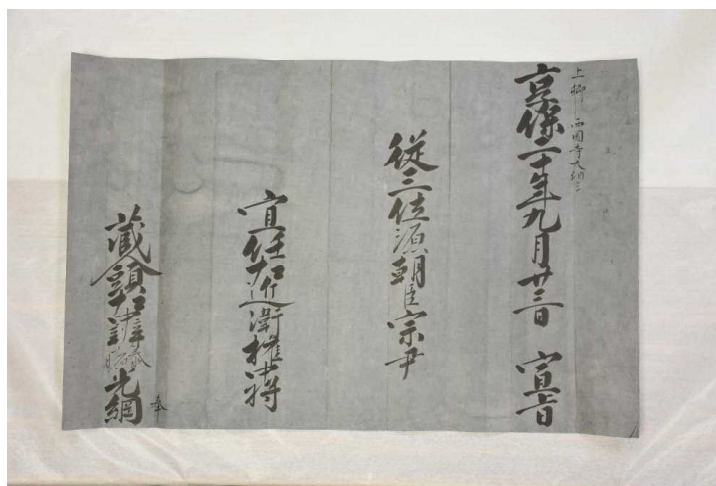 上卿 西園寺大納言
享保二十年九月廿三日 宣旨
從三位源朝臣宗尹
宜任右近衛權中将
蔵人頭右中辨藤原光綱 奉